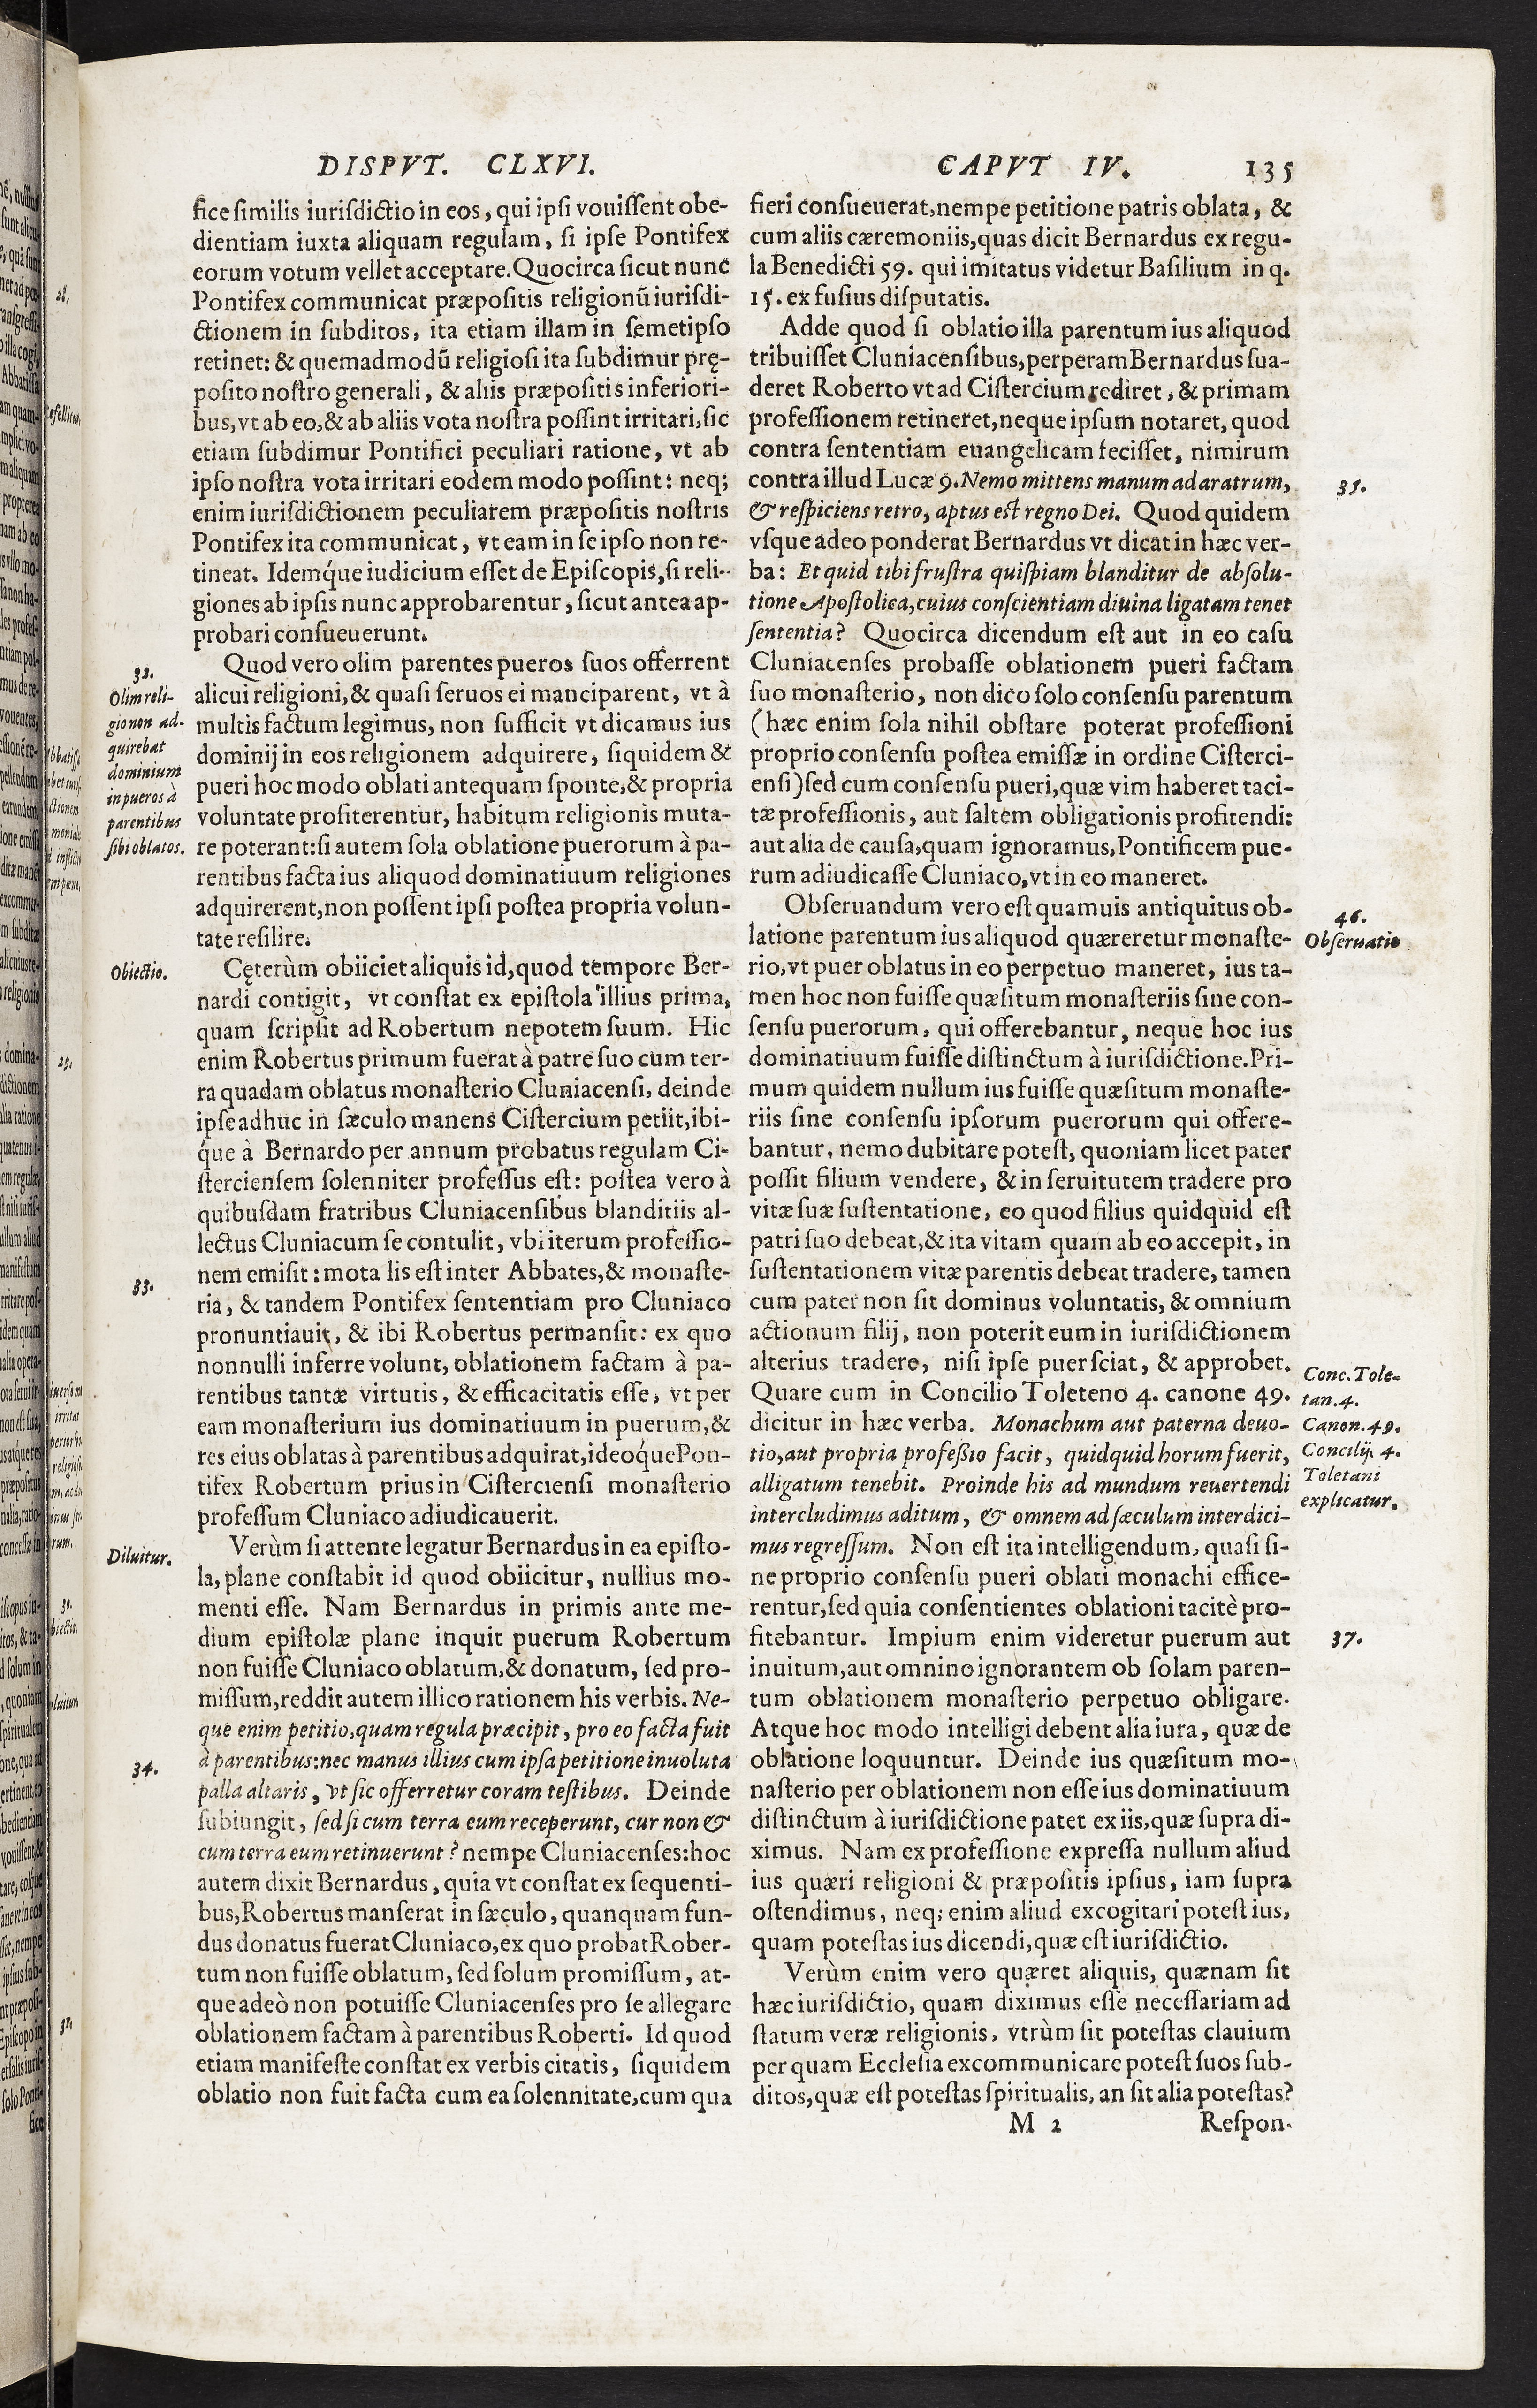 DISPVT. CLXVI. CAPVT IV. 135
fice ſimilis iuriſdictio in eos, qui ipſi vouiſſent obe-
dientiam iuxta aliquam regulam, ſi ipſe Pontifex
eorum votum vellet acceptare. Quocirca ſicut nunc
Pontifex communicat præpoſitis religionũ iuriſdi-
ctionem in ſubditos, ita etiam illam in ſemetipſo
retinet: & quemadmodũ religioſi ita ſubdimur prę-
poſito noſtro generali, & aliis præpoſitis inferiori-
bus, vt ab eo, & ab aliis vota noſtra poſſint irritari, ſic
etiam ſubdimur Pontifici peculiari ratione, vt ab
ipſo noſtra vota irritari eodem modo poſſint: neq;
enim iuriſdictionem peculiarem præpoſitis noſtris
Pontifex ita communicat, vt eam in ſe ipſo non re-
tineat. Idemq́ue iudicium eſſet de Epiſcopis, ſi reli-
giones ab ipſis nunc approbarentur, ſicut antea ap-
probari conſueuerunt.
32.
Olim reli-
gio non ad-
quirebat
dominium
in pueros à
parentibus
ſibi oblatos.
Quod vero olim parentes pueros ſuos offerrent
alicui religioni, & quaſi ſeruos ei manciparent, vt à
multis factum legimus, non ſufficit vt dicamus ius
dominij in eos religionem adquirere, ſiquidem &
pueri hoc modo oblati antequam ſponte, & propria
voluntate profiterentur, habitum religionis muta-
re poterant: ſi autem ſola oblatione puerorum à pa-
rentibus facta ius aliquod dominatiuum religiones
adquirerent, non poſſent ipſi poſtea propria volun-
tate reſilire.
Obiectio.
Cęterùm obiiciet aliquis id, quod tempore Ber-
nardi contigit, vt conſtat ex epiſtola illius prima,
quam ſcripſit ad Robertum nepotem ſuum. Hic
enim Robertus primum fuerat à patre ſuo cum ter-
ra quadam oblatus monaſterio Cluniacenſi, deinde
ipſe adhuc in ſæculo manens Ciſtercium petiit, ibi-
q́ue à Bernardo per annum probatus regulam Ci-
ſtercienſem ſolenniter profeſſus eſt: poſtea vero à
quibuſdam fratribus Cluniacenſibus blanditiis al-
lectus Cluniacum ſe contulit, vbi iterum profeſſio-
33.
nem emiſit: mota lis eſt inter Abbates, & monaſte-
ria, & tandem Pontifex ſententiam pro Cluniaco
pronuntiauit, & ibi Robertus permanſit: ex quo
nonnulli inferre volunt, oblationem factam à pa-
rentibus tantæ virtutis, & efficacitatis eſſe, vt per
eam monaſterium ius dominatiuum in puerum, &
res eius oblatas à parentibus adquirat, ideoq́ue Pon-
tifex Robertum prius in Ciſtercienſi monaſterio
profeſſum Cluniaco adiudicauerit.
Diluitur.
Verùm ſi attente legatur Bernardus in ea epiſto-
la, plane conſtabit id quod obiicitur, nullius mo-
menti eſſe. Nam Bernardus in primis ante me-
dium epiſtolæ plane inquit puerum Robertum
non fuiſſe Cluniaco oblatum, & donatum, ſed pro-
miſſum, reddit autem illico rationem his verbis. Ne-
que enim petitio, quam regula præcipit, pro eo facta fuit
34.
à parentibus: nec manus illius cum ipſa petitione inuoluta
palla altaris, vt ſic offerretur coram teſtibus. Deinde
ſubiungit, ſed ſi cum terra eum receperunt, cur non &
cum terra eum retinuerunt? nempe Cluniacenſes: hoc
autem dixit Bernardus, quia vt conſtat ex ſequenti-
bus, Robertus manſerat in ſæculo, quanquam fun-
dus donatus fuerat Cluniaco, ex quo probat Rober-
tum non fuiſſe oblatum, ſed ſolum promiſſum, at-
que adeò non potuiſſe Cluniacenſes pro ſe allegare
oblationem factam à parentibus Roberti. Id quod
etiam manifeſte conſtat ex verbis citatis, ſiquidem
oblatio non fuit facta cum ea ſolennitate, cum qua
fieri conſueuerat, nempe petitione patris oblata, &
cum aliis cæremoniis, quas dicit Bernardus ex regu-
la Benedicti 59. qui imitatus videtur Baſilium in q.
15. ex fuſius diſputatis.
Adde quod ſi oblatio illa parentum ius aliquod
tribuiſſet Cluniacenſibus, perperam Bernardus ſua-
deret Roberto vt ad Ciſtercium rediret, & primam
profeſſionem retineret, neque ipſum notaret, quod
contra ſententiam euangelicam feciſſet, nimirum
35.
contra illud Lucæ 9. Nemo mittens manum ad aratrum,
& reſpiciens retro, aptus eſt regno Dei. Quod quidem
vſque adeo ponderat Bernardus vt dicat in hæc ver-
ba: Et quid tibi fruſtra quiſpiam blanditur de abſolu-
tione Apoſtolica, cuius conſcientiam diuina ligatam tenet
ſententia? Quocirca dicendum eſt aut in eo caſu
Cluniacenſes probaſſe oblationem pueri factam
ſuo monaſterio, non dico ſolo conſenſu parentum
(hæc enim ſola nihil obſtare poterat profeſſioni
proprio conſenſu poſtea emiſſæ in ordine Ciſterci-
enſi) ſed cum conſenſu pueri, quæ vim haberet taci-
tæ profeſſionis, aut ſaltem obligationis profitendi:
aut alia de cauſa, quam ignoramus, Pontificem pue-
rum adiudicaſſe Cluniaco, vt in eo maneret.
46.
Obſeruatio
Obſeruandum vero eſt quamuis antiquitus ob-
latione parentum ius aliquod quæreretur monaſte-
rio, vt puer oblatus in eo perpetuo maneret, ius ta-
men hoc non fuiſſe quæſitum monaſteriis ſine con-
ſenſu puerorum, qui offerebantur, neque hoc ius
dominatiuum fuiſſe diſtinctum à iuriſdictione. Pri-
mum quidem nullum ius fuiſſe quæſitum monaſte-
riis ſine conſenſu ipſorum puerorum qui offere-
bantur, nemo dubitare poteſt, quoniam licet pater
poſſit filium vendere, & in ſeruitutem tradere pro
vitæ ſuæ ſuſtentatione, eo quod filius quidquid eſt
patri ſuo debeat, & ita vitam quam ab eo accepit, in
ſuſtentationem vitæ parentis debeat tradere, tamen
cum pater non ſit dominus voluntatis, & omnium
actionum filij, non poterit eum in iuriſdictionem
alterius tradere, niſi ipſe puer ſciat, & approbet.
Conc. Tole-
tan. 4.
Canon. 49.
Concilij 4.
Toletani
explicatur.
Quare cum in Concilio Toleteno 4. canone 49.
dicitur in hæc verba. Monachum aut paterna deuo-
tio, aut propria profeſsio facit, quidquid horum fuerit,
alligatum tenebit. Proinde his ad mundum reuertendi
intercludimus aditum, & omnem ad ſæculum interdici-
mus regreſſum. Non eſt ita intelligendum, quaſi ſi-
ne proprio conſenſu pueri oblati monachi effice-
rentur, ſed quia conſentientes oblationi tacitè pro-
37.
fitebantur. Impium enim videretur puerum aut
inuitum, aut omnino ignorantem ob ſolam paren-
tum oblationem monaſterio perpetuo obligare.
Atque hoc modo intelligi debent alia iura, quæ de
oblatione loquuntur. Deinde ius quæſitum mo-
naſterio per oblationem non eſſe ius dominatiuum
diſtinctum à iuriſdictione patet ex iis, quæ ſupra di-
ximus. Nam ex profeſſione expreſſa nullum aliud
ius quæri religioni & præpoſitis ipſius, iam ſupra
oſtendimus, neq; enim aliud excogitari poteſt ius,
quam poteſtas ius dicendi, quæ eſt iuriſdictio.
Verùm enim vero quæret aliquis, quænam ſit
hæc iuriſdictio, quam diximus eſſe neceſſariam ad
ſtatum veræ religionis, vtrùm ſit poteſtas clauium
per quam Eccleſia excommunicare poteſt ſuos ſub-
ditos, quæ eſt poteſtas ſpiritualis, an ſit alia poteſtas?
M 2 Reſpon-